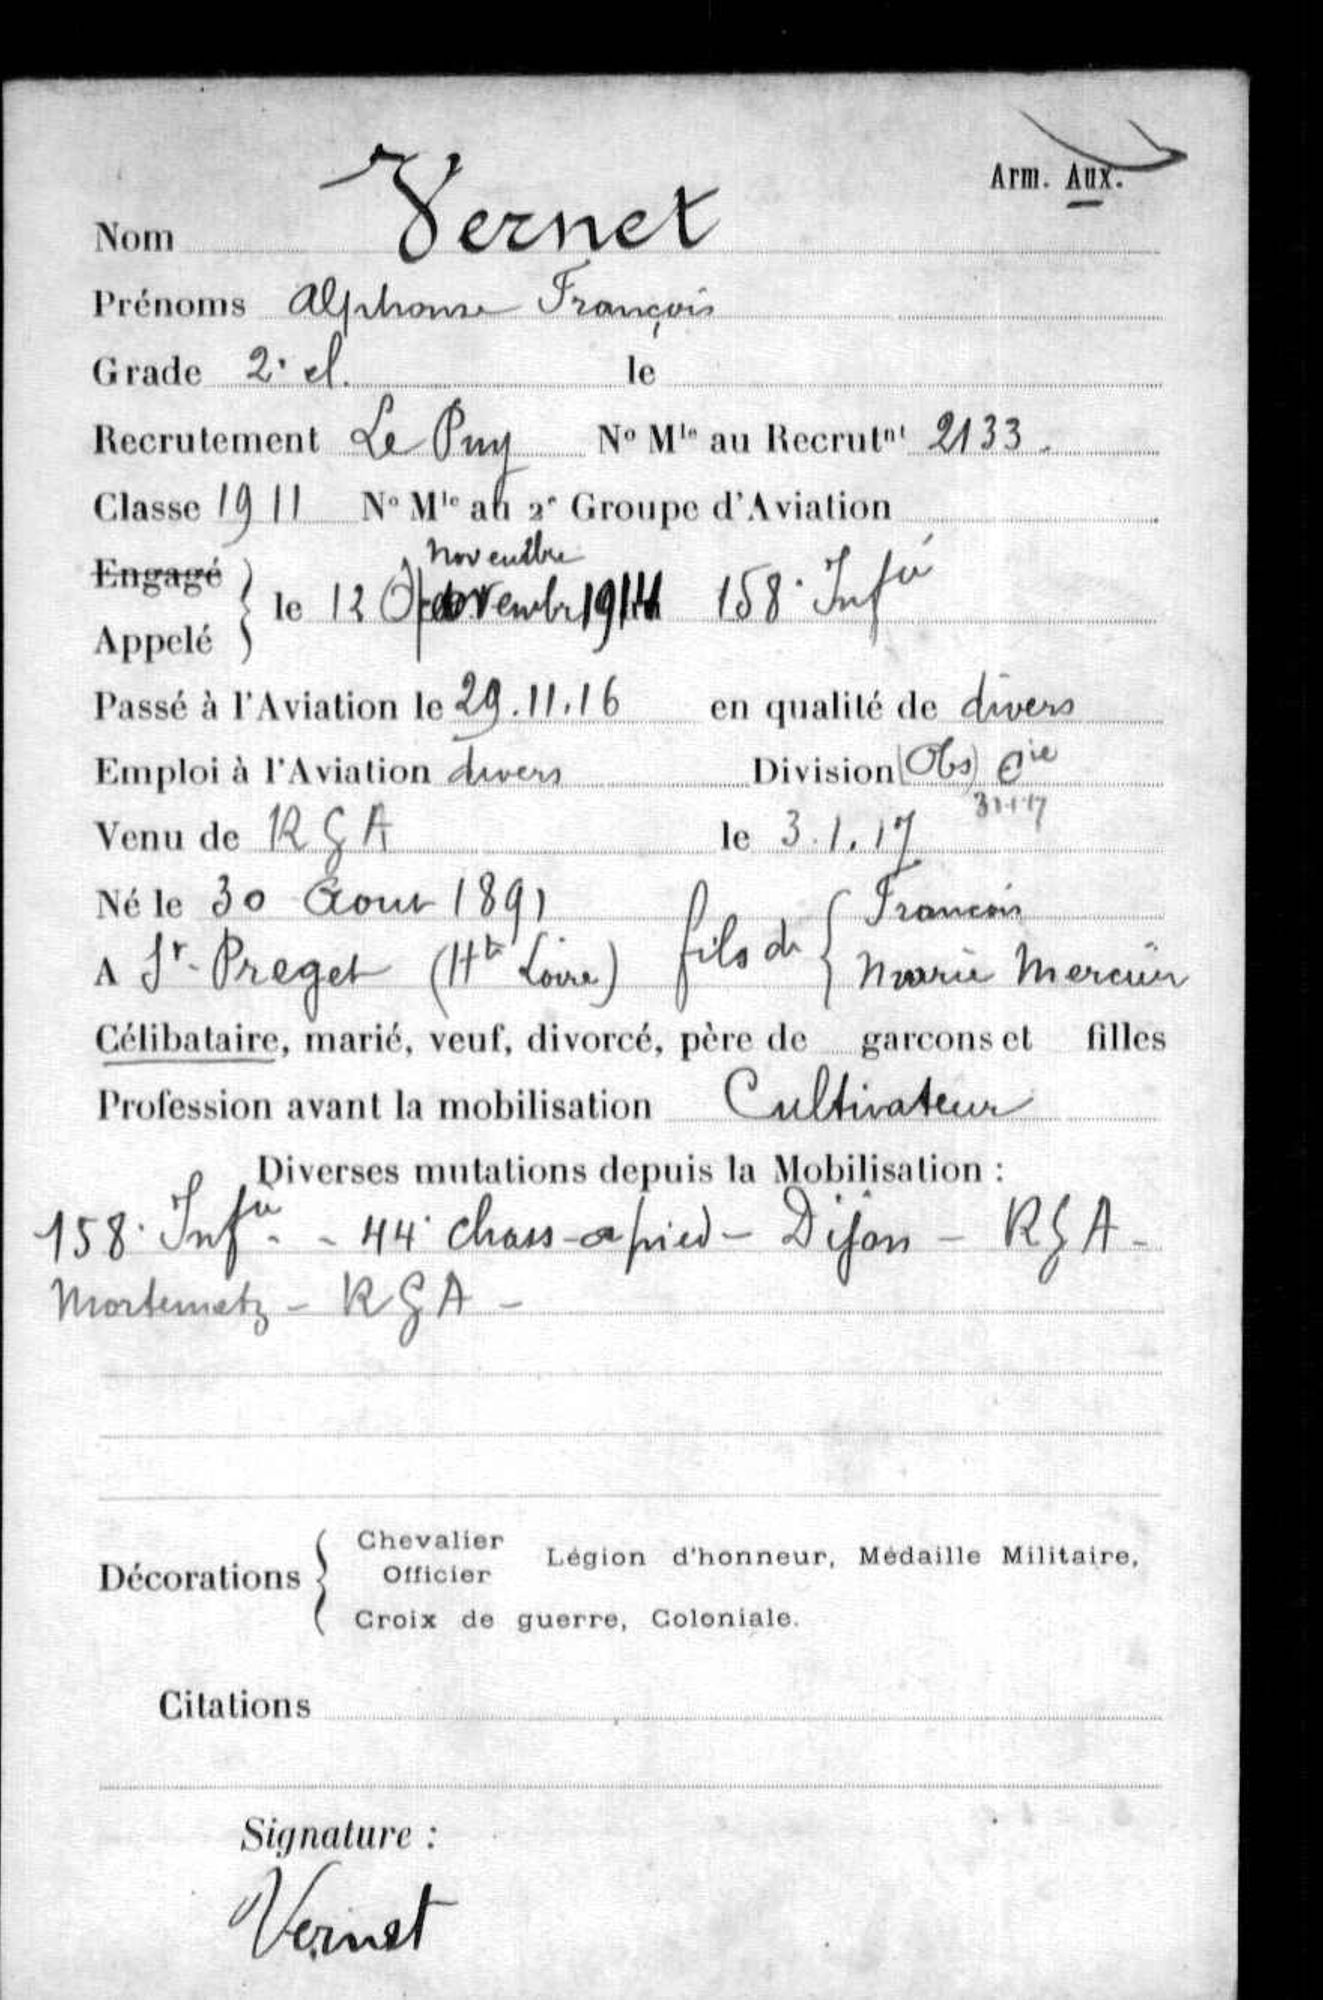 Arm. Aux.
Nom Vernet
Prénoms Alphonse François
Grade 2e cl. le
Recrutement Le Puy No Mle au Recrutnt 2133.
Classe 1911 No Mle au 2e Groupe d'Aviation
novembre
Engagé
le 12 1914 158e Infie
Appelé
Passé à l'Aviation le 29.11.16 en qualité de divers
Emploi à l'Aviation divers Division (Obs) Cie
31-1-17
Venu de RGA le 3.1.17
Né le 30 Aout 1891 fils de François
A St-Preget (Hte Loire) Marie Mercier
Célibataire, marié, veuf, divorcé, père de garcons et filles
Profession avant la mobilisation Cultivateur
Diverses mutations depuis la Mobilisation :
158e Infie - 44e chass-a pied - Dijon - RGA -
Mortemetz - RGA -
Chevalier
Décorations Officier Légion d'honneur, Médaille Militaire,
Croix de guerre, Coloniale.
Citations
Signature :
Vernet